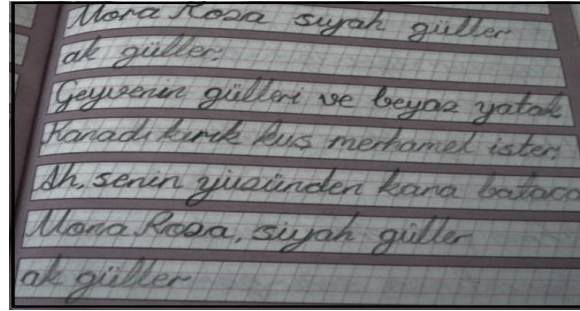 Mona Roza siyah güller
ak güller.
Geyvenin gülleri ve beyaz yatak
Kanadı kırık kuş merhamet ister.
Ah, senin yüzünden kana bataca
Mona Roza, siyah güller
ak güller